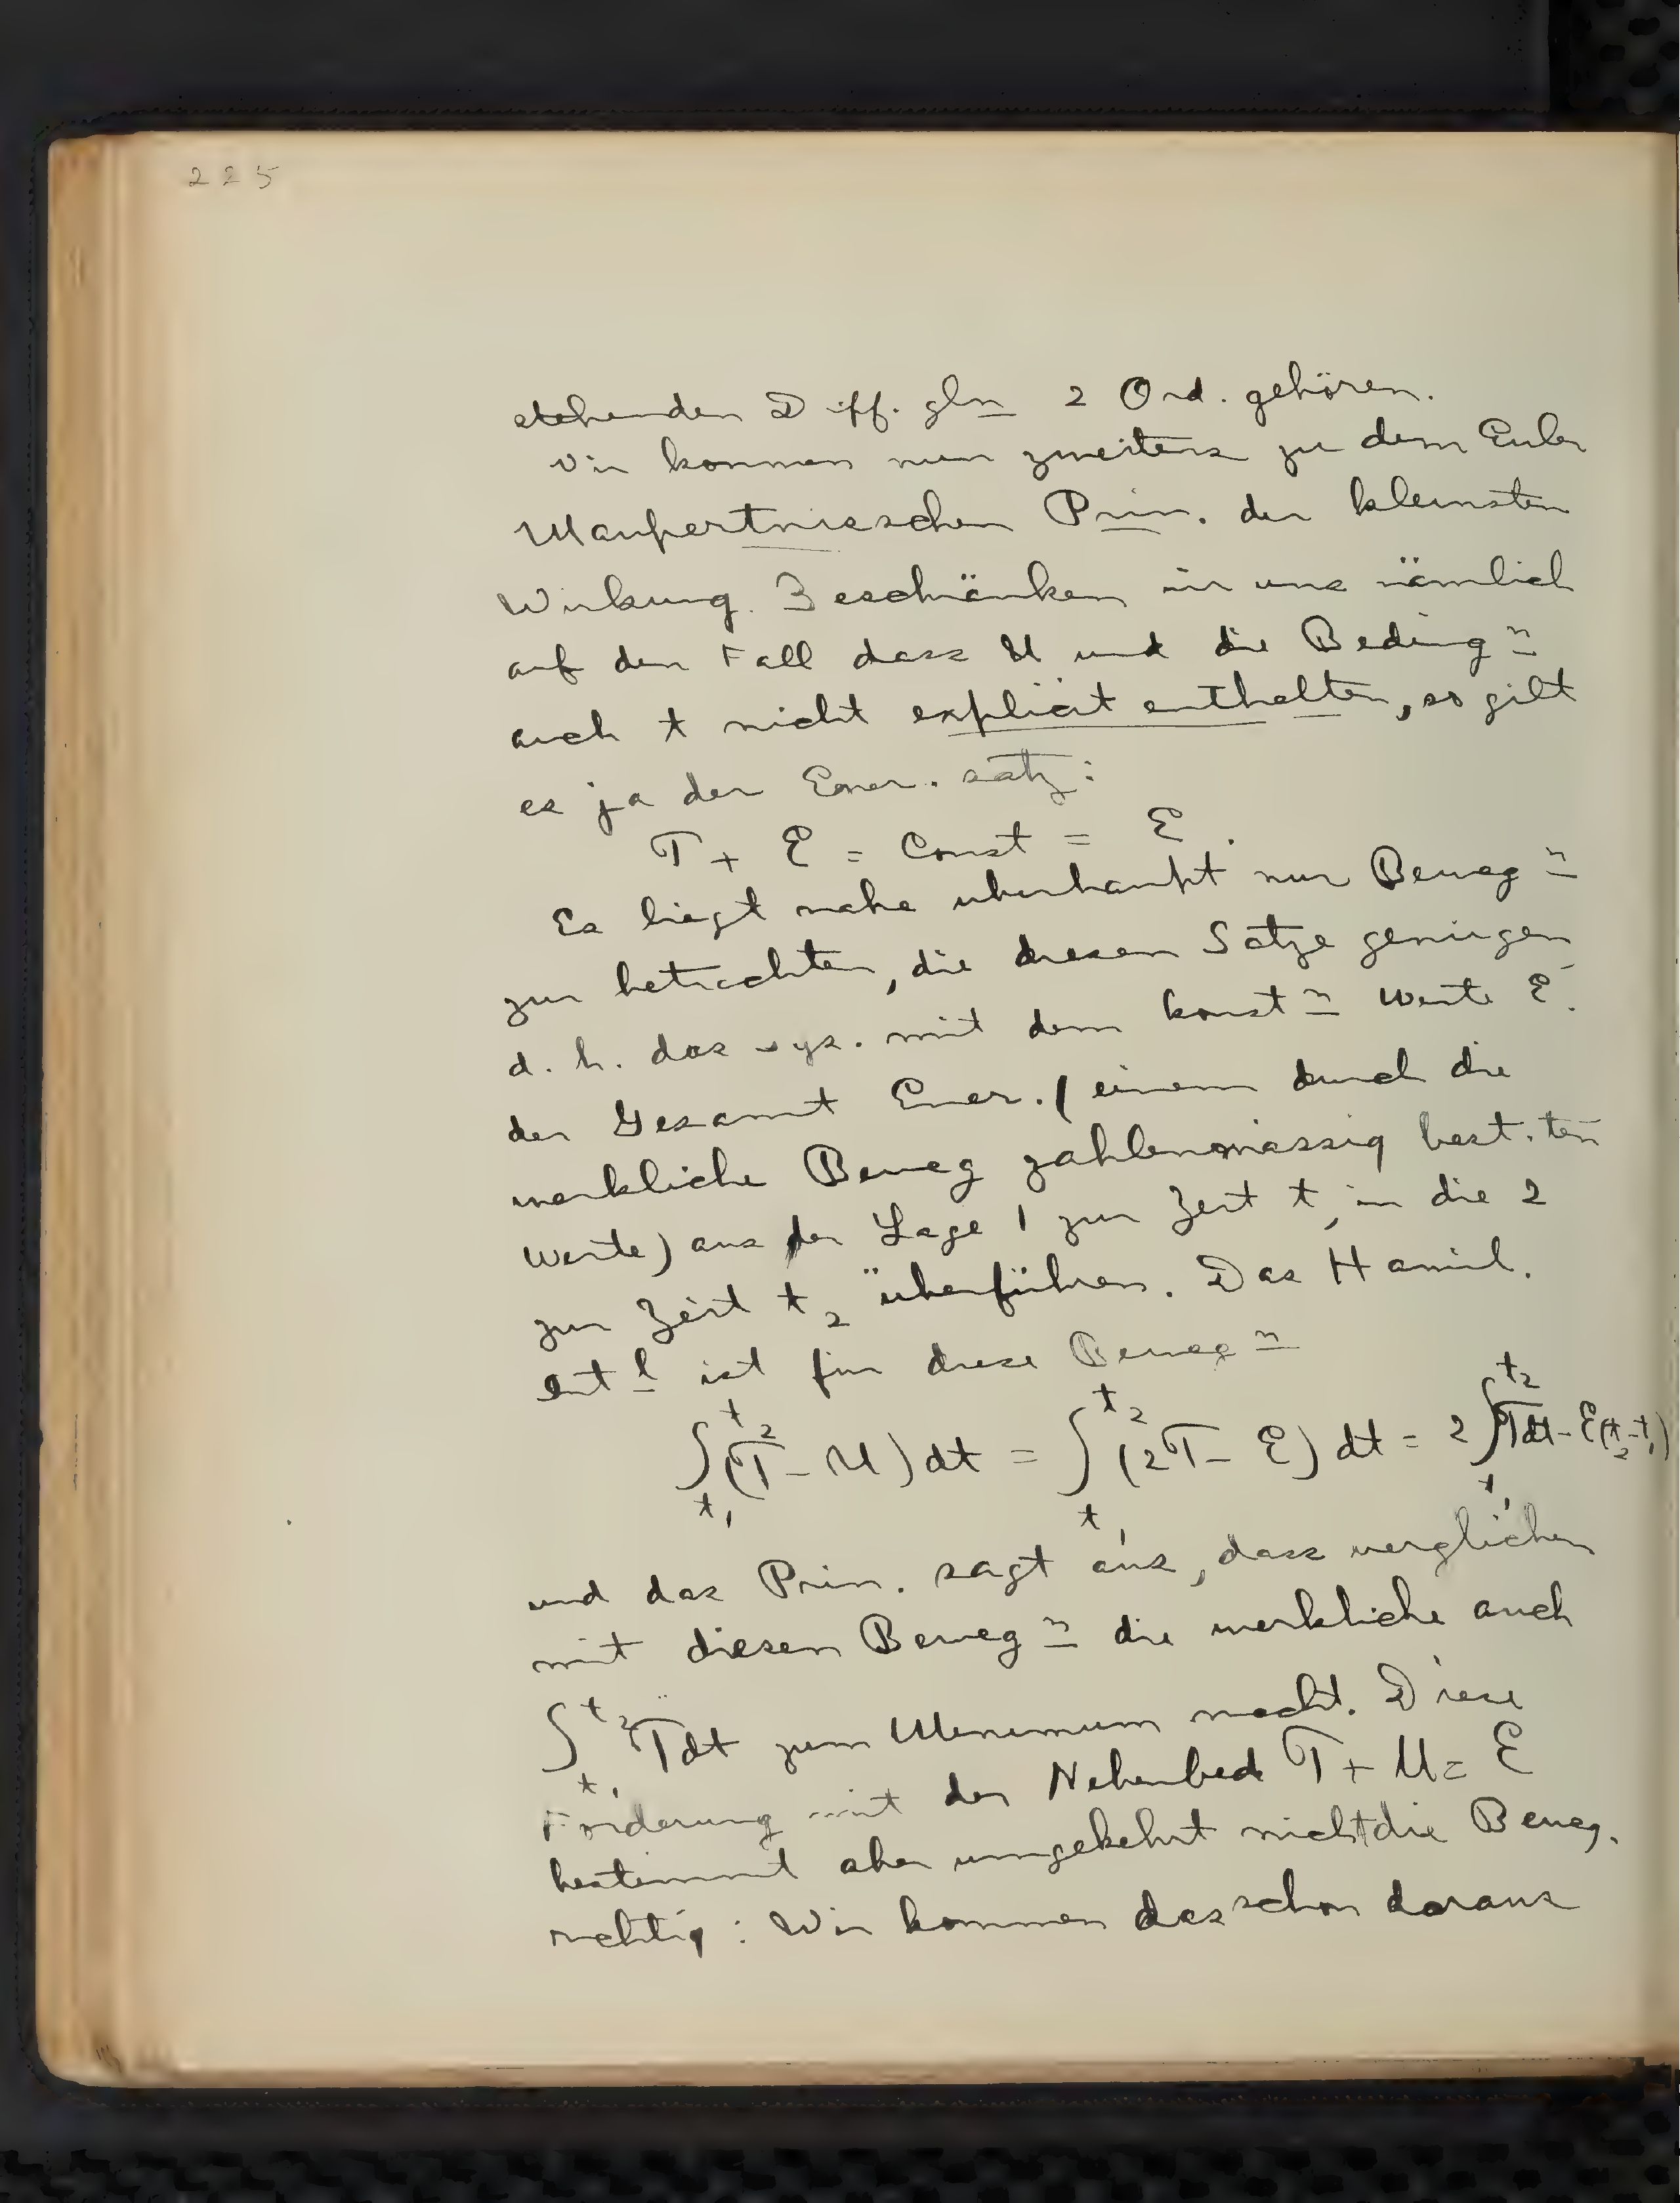 225
stehenden Diff. gln 2 Ord. gehören.
Wir kommen nun zweitens zu dem Euler
Maupertuisschen Prin. der kleinsten
Wirkung. Beschränken wir uns nämlich
auf den Fall dass U und die Beding n
auch t nicht explicit enthalten, so gilt
es ja der Ener. satz:
T + E = Const = E.
Es liegt nahe uberhaupt nur Beweg n
zur betrachten, die diesem Satze genügen
d. h. das sys. mit dem konst n Werte E.
der Gesamt Ener. (einem durch die
werkliche Beweg zahlenmässig best. ten
Werte) aus der Lage 1 zur Zeit t, in die 2
zur Zeit t₂ überführen. Das Hamil.
ist für diese Beweg n
∫_{t₁}^{t₂} (T - U) dt = ∫_{t₁}^{t₂} (2T - E) dt = 2∫_{t₁}^{t₂} Tdt - E(t₂-t₁)
und das Prin. sagt aus, dass verglichen
mit diesen Beweg n die werkliche auch
∫_{t₁}^{t₂} Tdt zum Minimum macht. Diese
Forderung mit der Nebenbed T + U = E
bestimmt aber umgekehrt nicht die Beweg.
richtig: Wir kommen das schon daraus